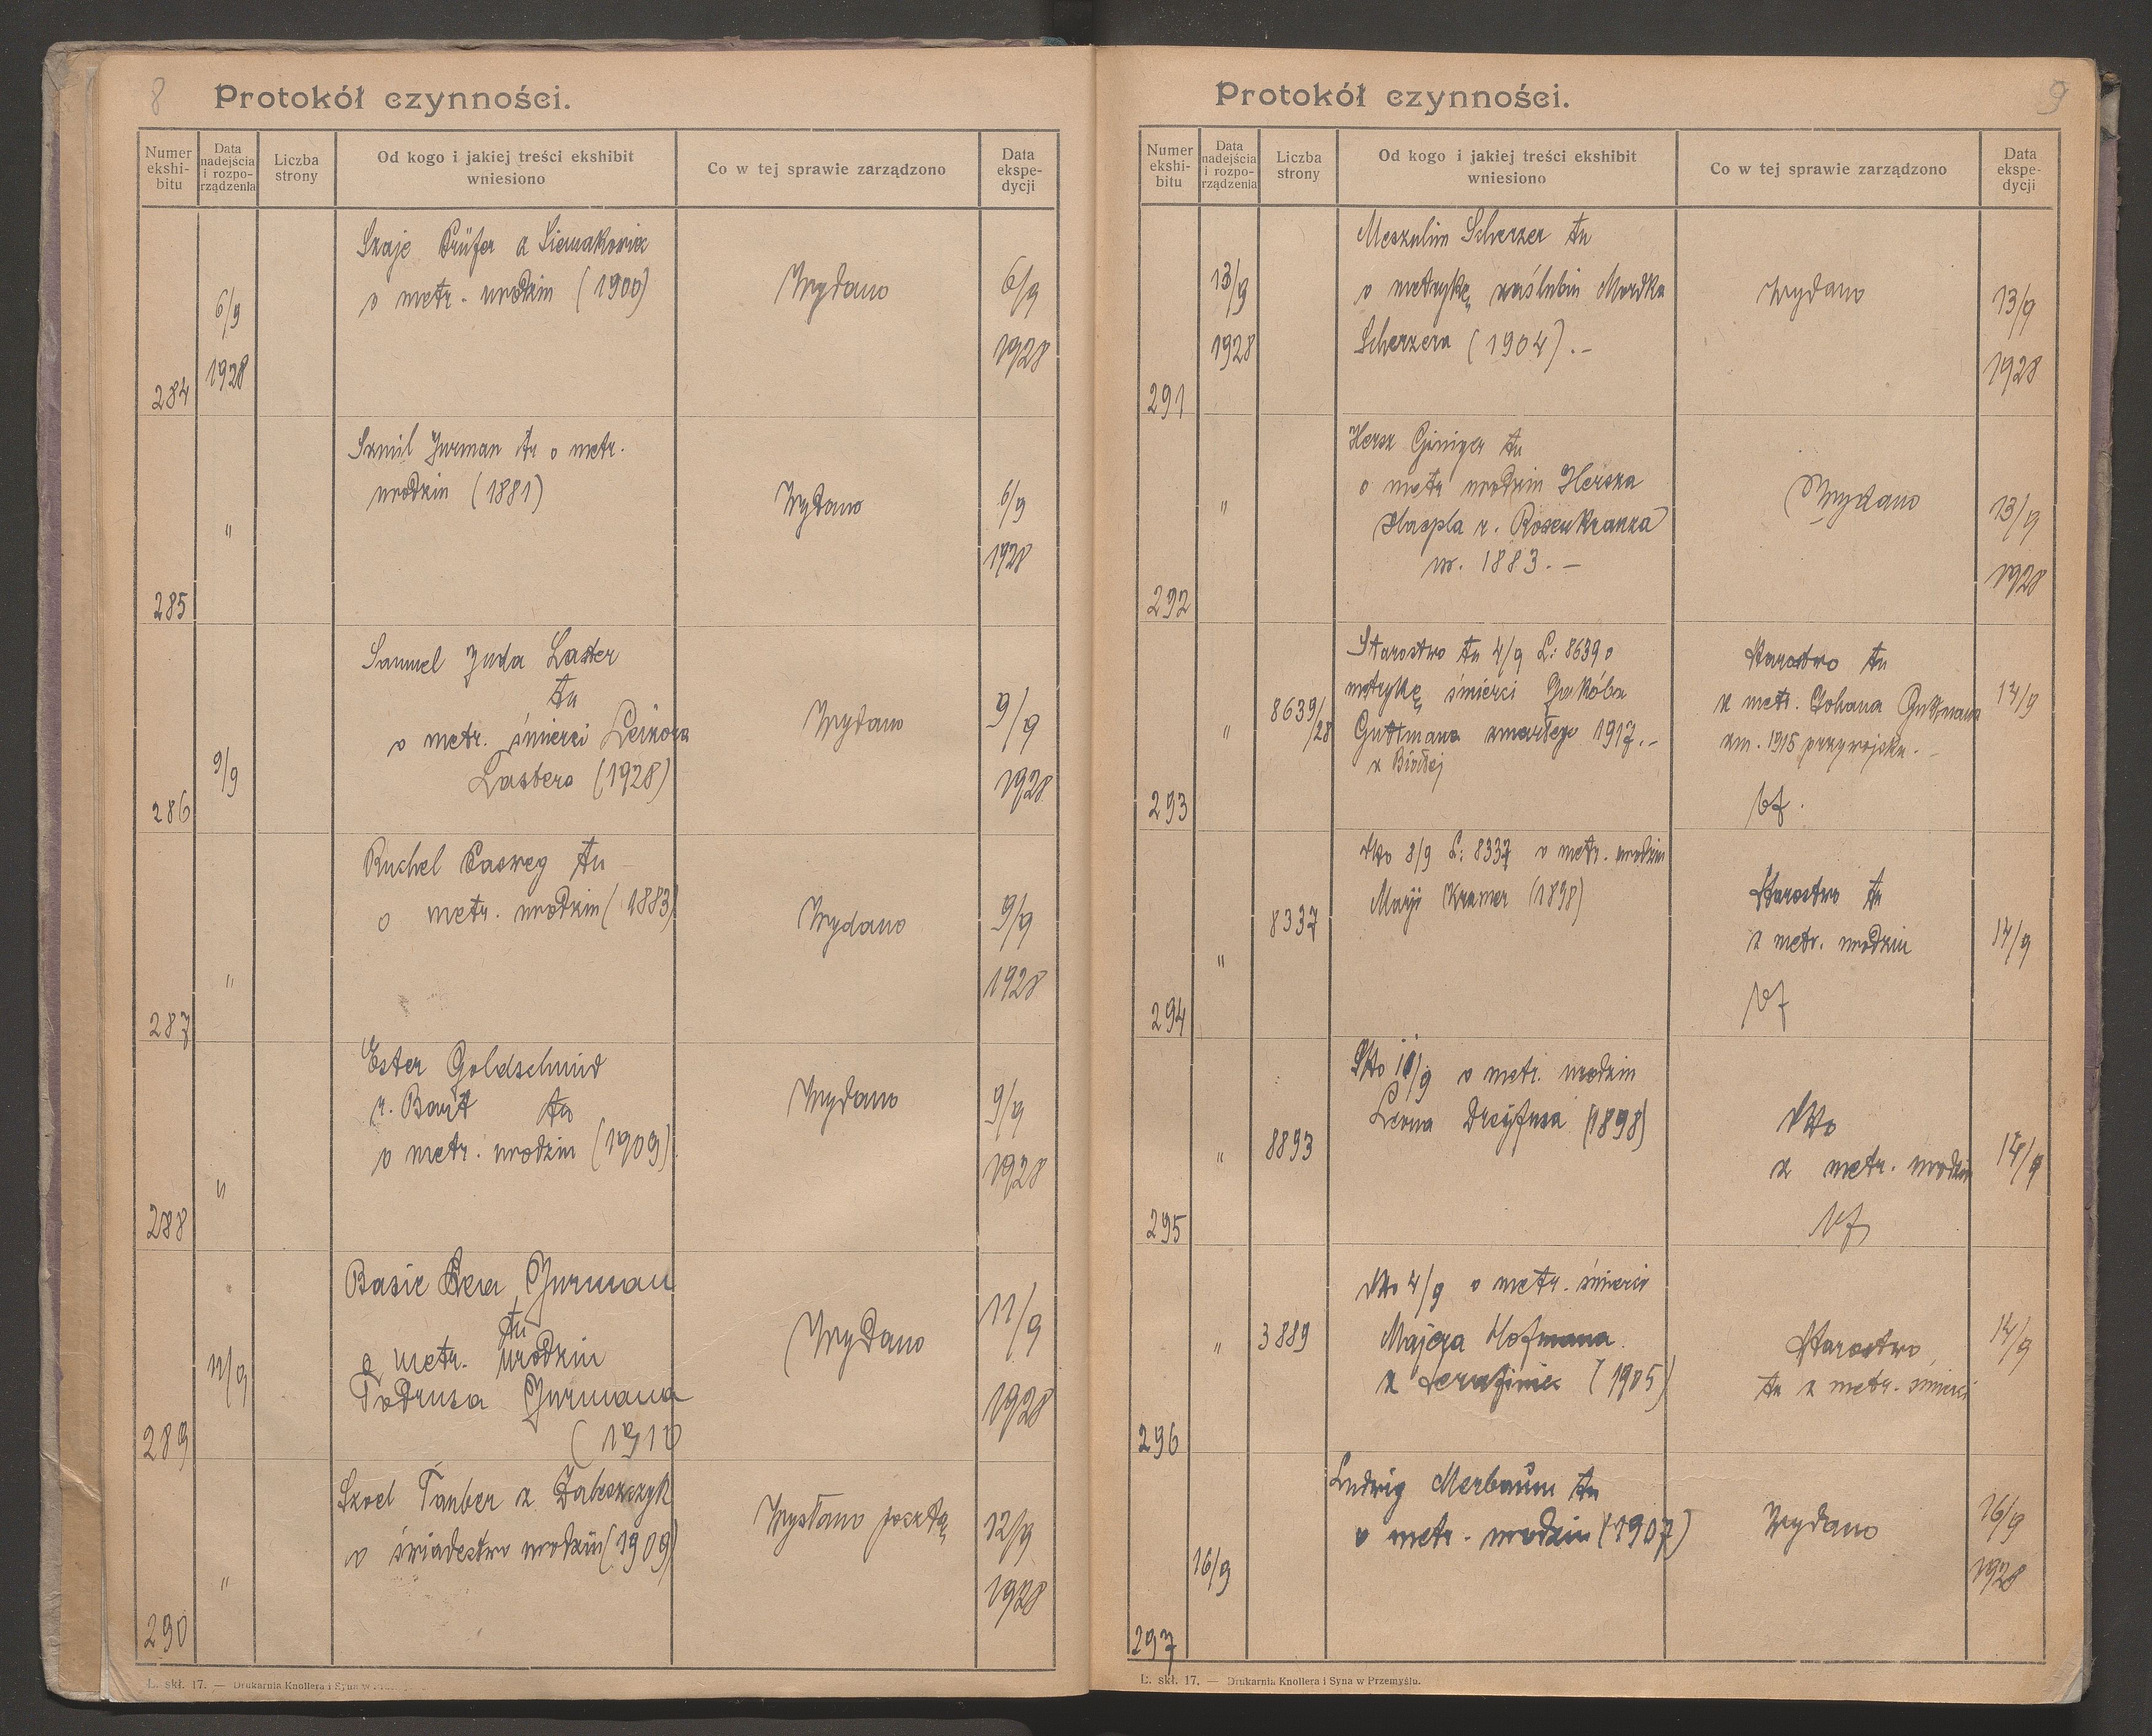 8
Protokół czynności.
Numer ekshi-bitu
Data nadejścia i rozpo-rządzenia
Liczba strony
Od kogo i jakiej treści ekshibit wniesiono
Co w tej sprawie zarządzono
Data ekspe-dycji
284
6/9
1928
Szaje Prüfer z Siemakowiec
o metr. urodzin (1900)
Wydano
6/9
1928
285
"
Szmil Jurman tu o metr.
urodzin (1881)
Wydano
6/9
1928
286
9/9
Samuel Juda Laster
tu
o metr. śmierci Leizora
Lastera (1928)
Wydano
9/9
1928
287
"
Ruchel Pasweg tu
o metr. urodzin (1883)
Wydano
9/9
1928
288
"
Ester Goldschmid
r. tu
o metr. urodzin (1909)
Wydano
9/9
1928
289
11/9
Basie Jurman
tu
o metr. urodzin
Todrusa Jurmana
Wydano
11/9
1928
290
"
Tauber z Zaleszczyk
o świadectwo urodzin (1909)
Wysłano pocztą
12/9
1928
L. skł. 17. — Drukarnia Knollera i Syna w
9
Protokół czynności.
Numer ekshi-bitu
Data nadejścia i rozpo-rządzenia
Liczba strony
Od kogo i jakiej treści ekshibit wniesiono
Co w tej sprawie zarządzono
Data ekspe-dycji
291
13/9
1928
Meszulim Scherzer tu
o metrykę zaślubin Mordka
Scherzera (1904).—
Wydano
13/9
1928
292
"
Hersz Giniger tu
o metr urodzin Herszka
r. Rosenkranza
ur. 1883.—
Wydano
13/9
1928
293
"
8639/28
Starostwo tu 4/9 L: 8639 o
metrykę śmierci Jakóba
Guttmana zmarłego 1917.—
z Białej
Starostwo tu
z metr. Johana Guttmana
zm. 1915 przy wojsku.—
14/9
294
"
8337
Stwo 8/9 L: 8337 o metr. urodzin
Marji Kramer (1898)
Starostwo tu
z metr. urodzin
14/9
295
"
8893
Stwo 10/9 o metr. urodzin
Leona Dreyfusa (1898)
Stwo
z metr. urodzin
14/9
296
"
3889
Stwo 4/9 o metr. śmierci
Majera Hofmana
z Serafiniec (1905)
Starostwo
tu z metr. śmierci
14/9
297
16/9
Ludwig Merbaum tu
o metr. urodzin (1907)
Wydano
16/9
1928
L. skł. 17. — Drukarnia Knollera i Syna w Przemyślu.